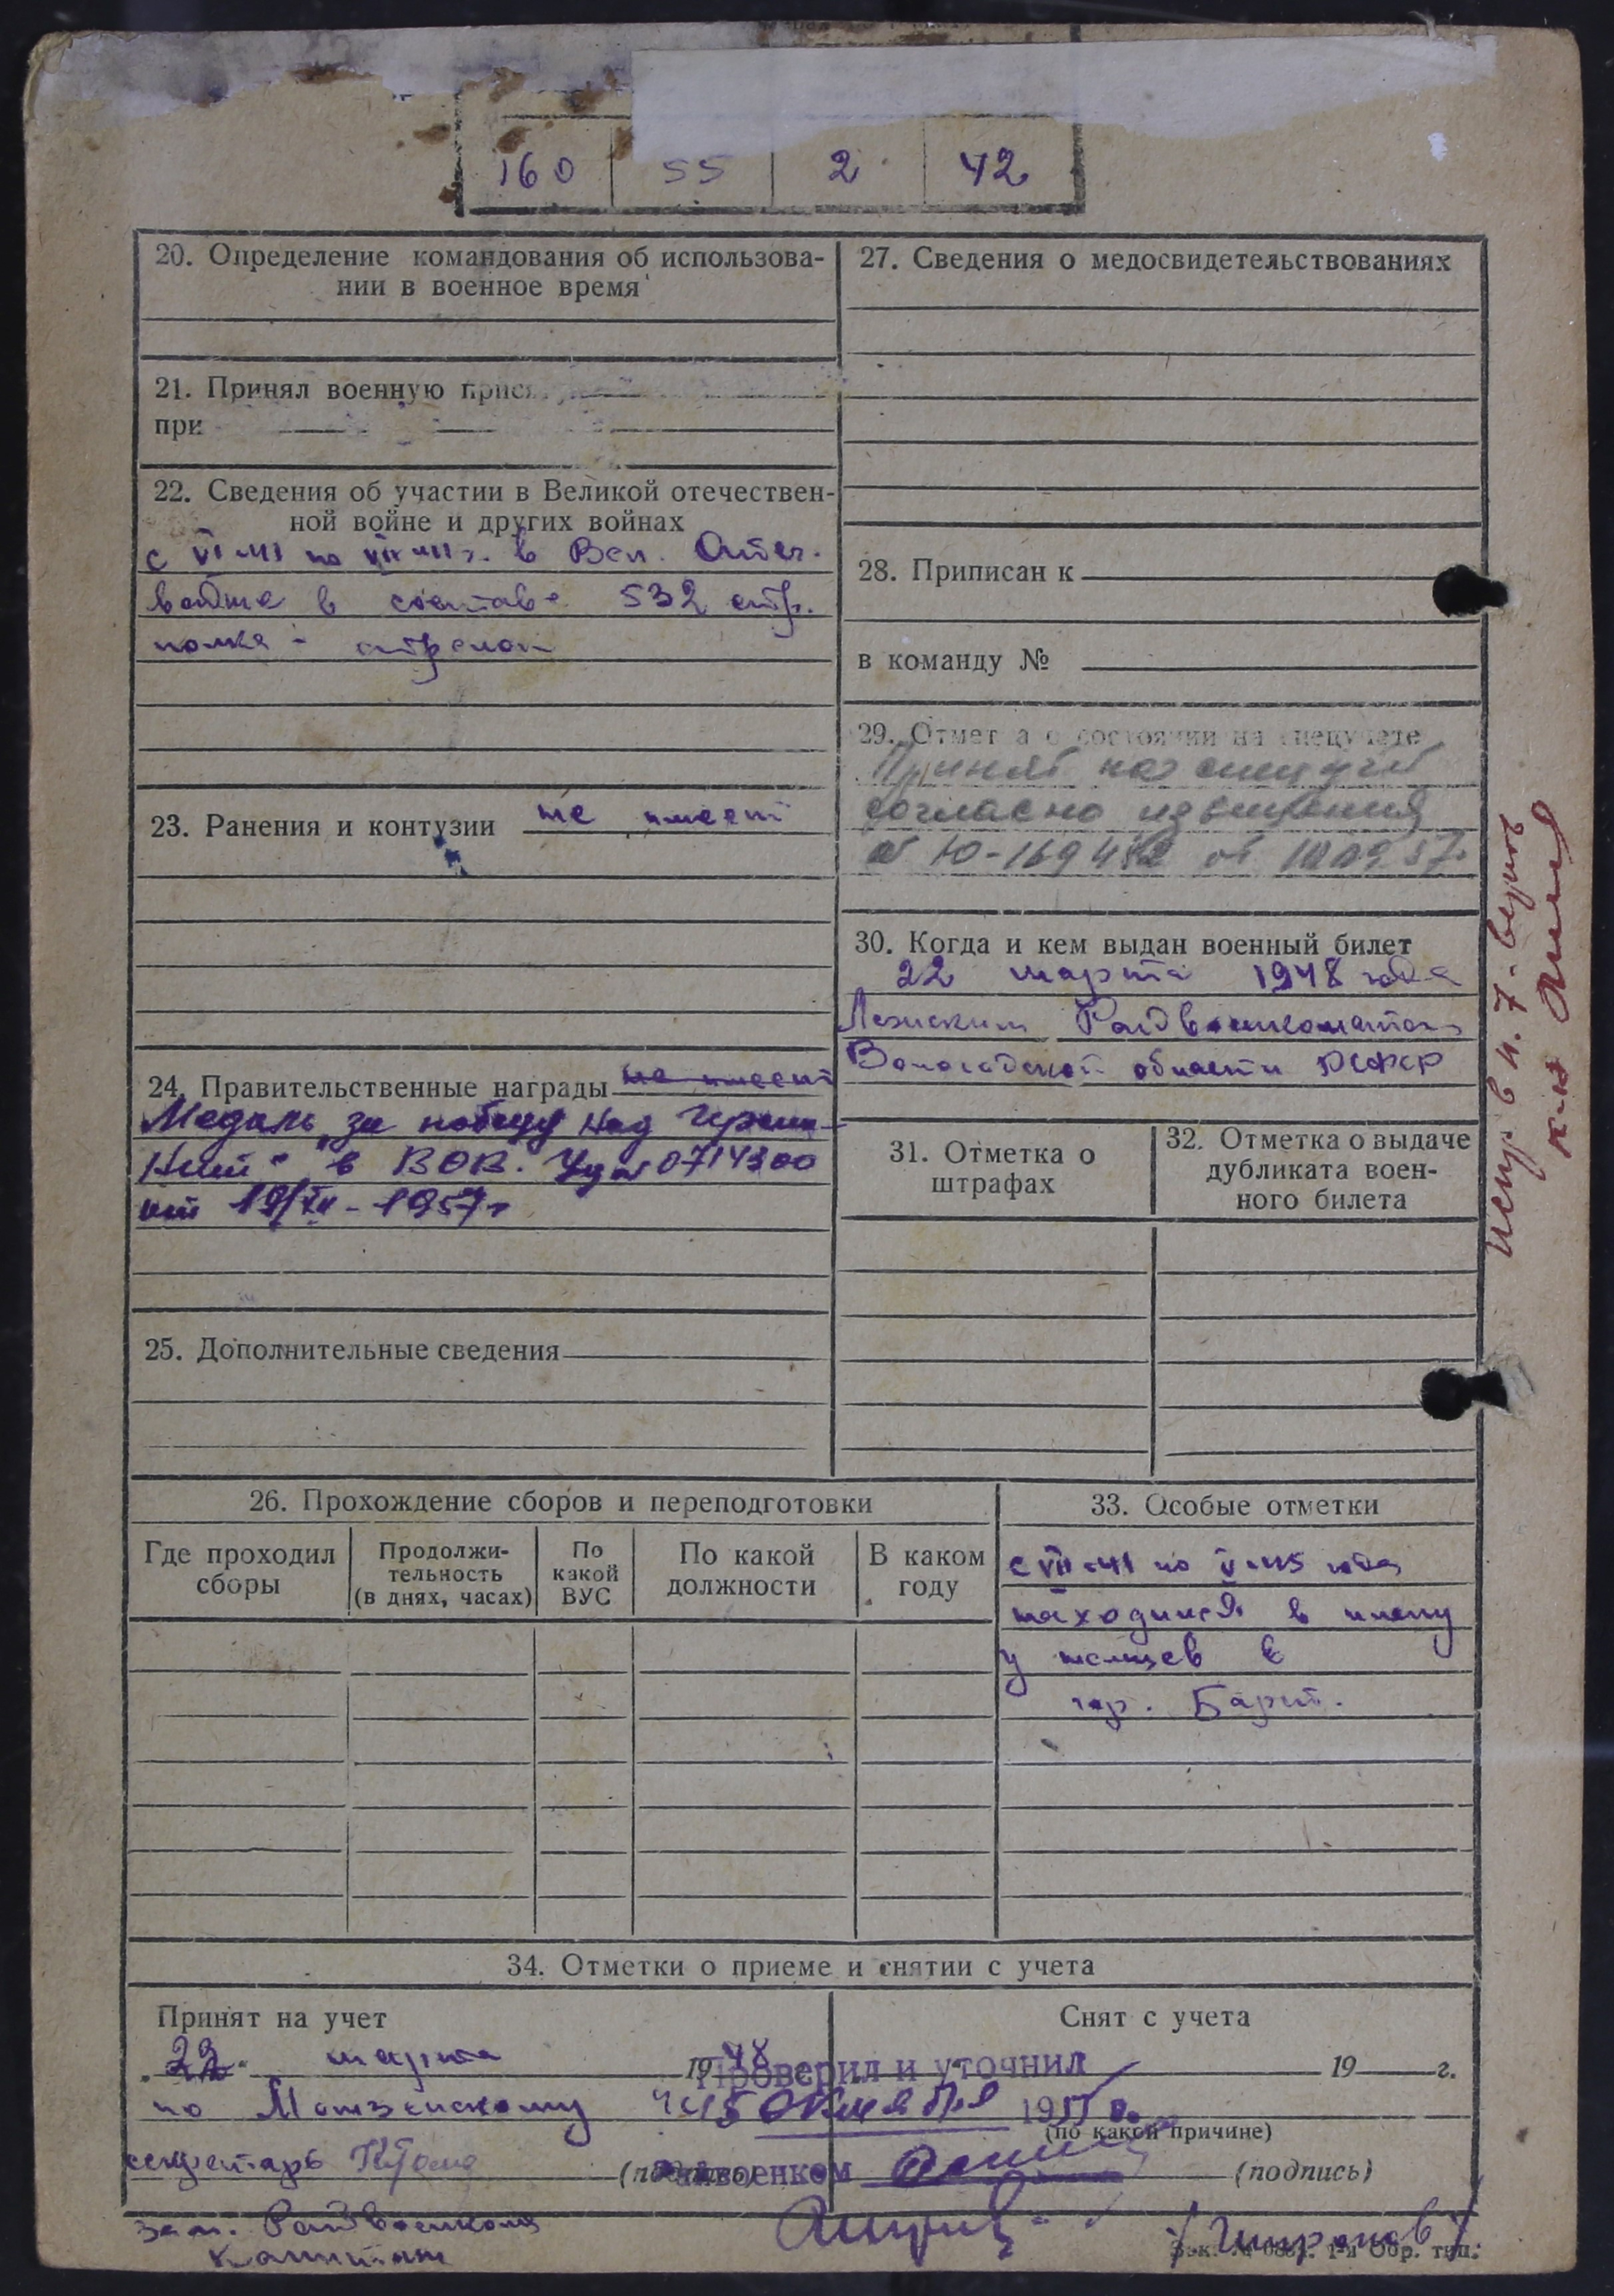 160 55 2 42
20. Определение командования об использова-
нии в военное время
21. Принял военную прися
при
22. Сведения об участии в Великой отечествен-
ной войне и других войнах
с VI-41 по VII-41 г. в Вел. Отеч.
войне в составе 532 стр.
полка - стрелок
23. Ранения и контузии не имеет
24. Правительственные награды не имеет
Медаль „За победу над Герма-
нией" в ВОВ. Уд № 0714300
от 19/XII-1957г
25. Дополнительные сведения
27. Сведения о медосвидетельствованиях
28. Приписан к
в команду №
29. Отмет а о состоянии на спецучете
Принят на спец учет
согласно извещения
№ Ю-169482 от
30. Когда и кем выдан военный билет
22 марта 1948 года
Райвоенкоматом
Вологодской области РСФСР
31. Отметка о
штрафах
32. Отметка о выдаче
дубликата воен-
ного билета
испр. в п. 7. верить
к-н
26. Прохождение сборов и переподготовки
Где проходил
сборы
Продолжи-
тельность
(в днях, часах)
По
какой
ВУС
По какой
должности
В каком
году
33. Особые отметки
с VII-41 по V-45 года
находился в плену
у немцев в
гор. Барт.
34. Отметки о приеме и снятии с учета
Принят на учет
22 марта 1948
по
секретарь
(подпись)
Снят с учета
19 г.
(по какой причине)
(подпись)
Проверил и уточнил
октября 1955 г.
Райвоенком
зам. Райвоенкома
капитан
/Широков/
Зак. № 1-я Обр. тип.